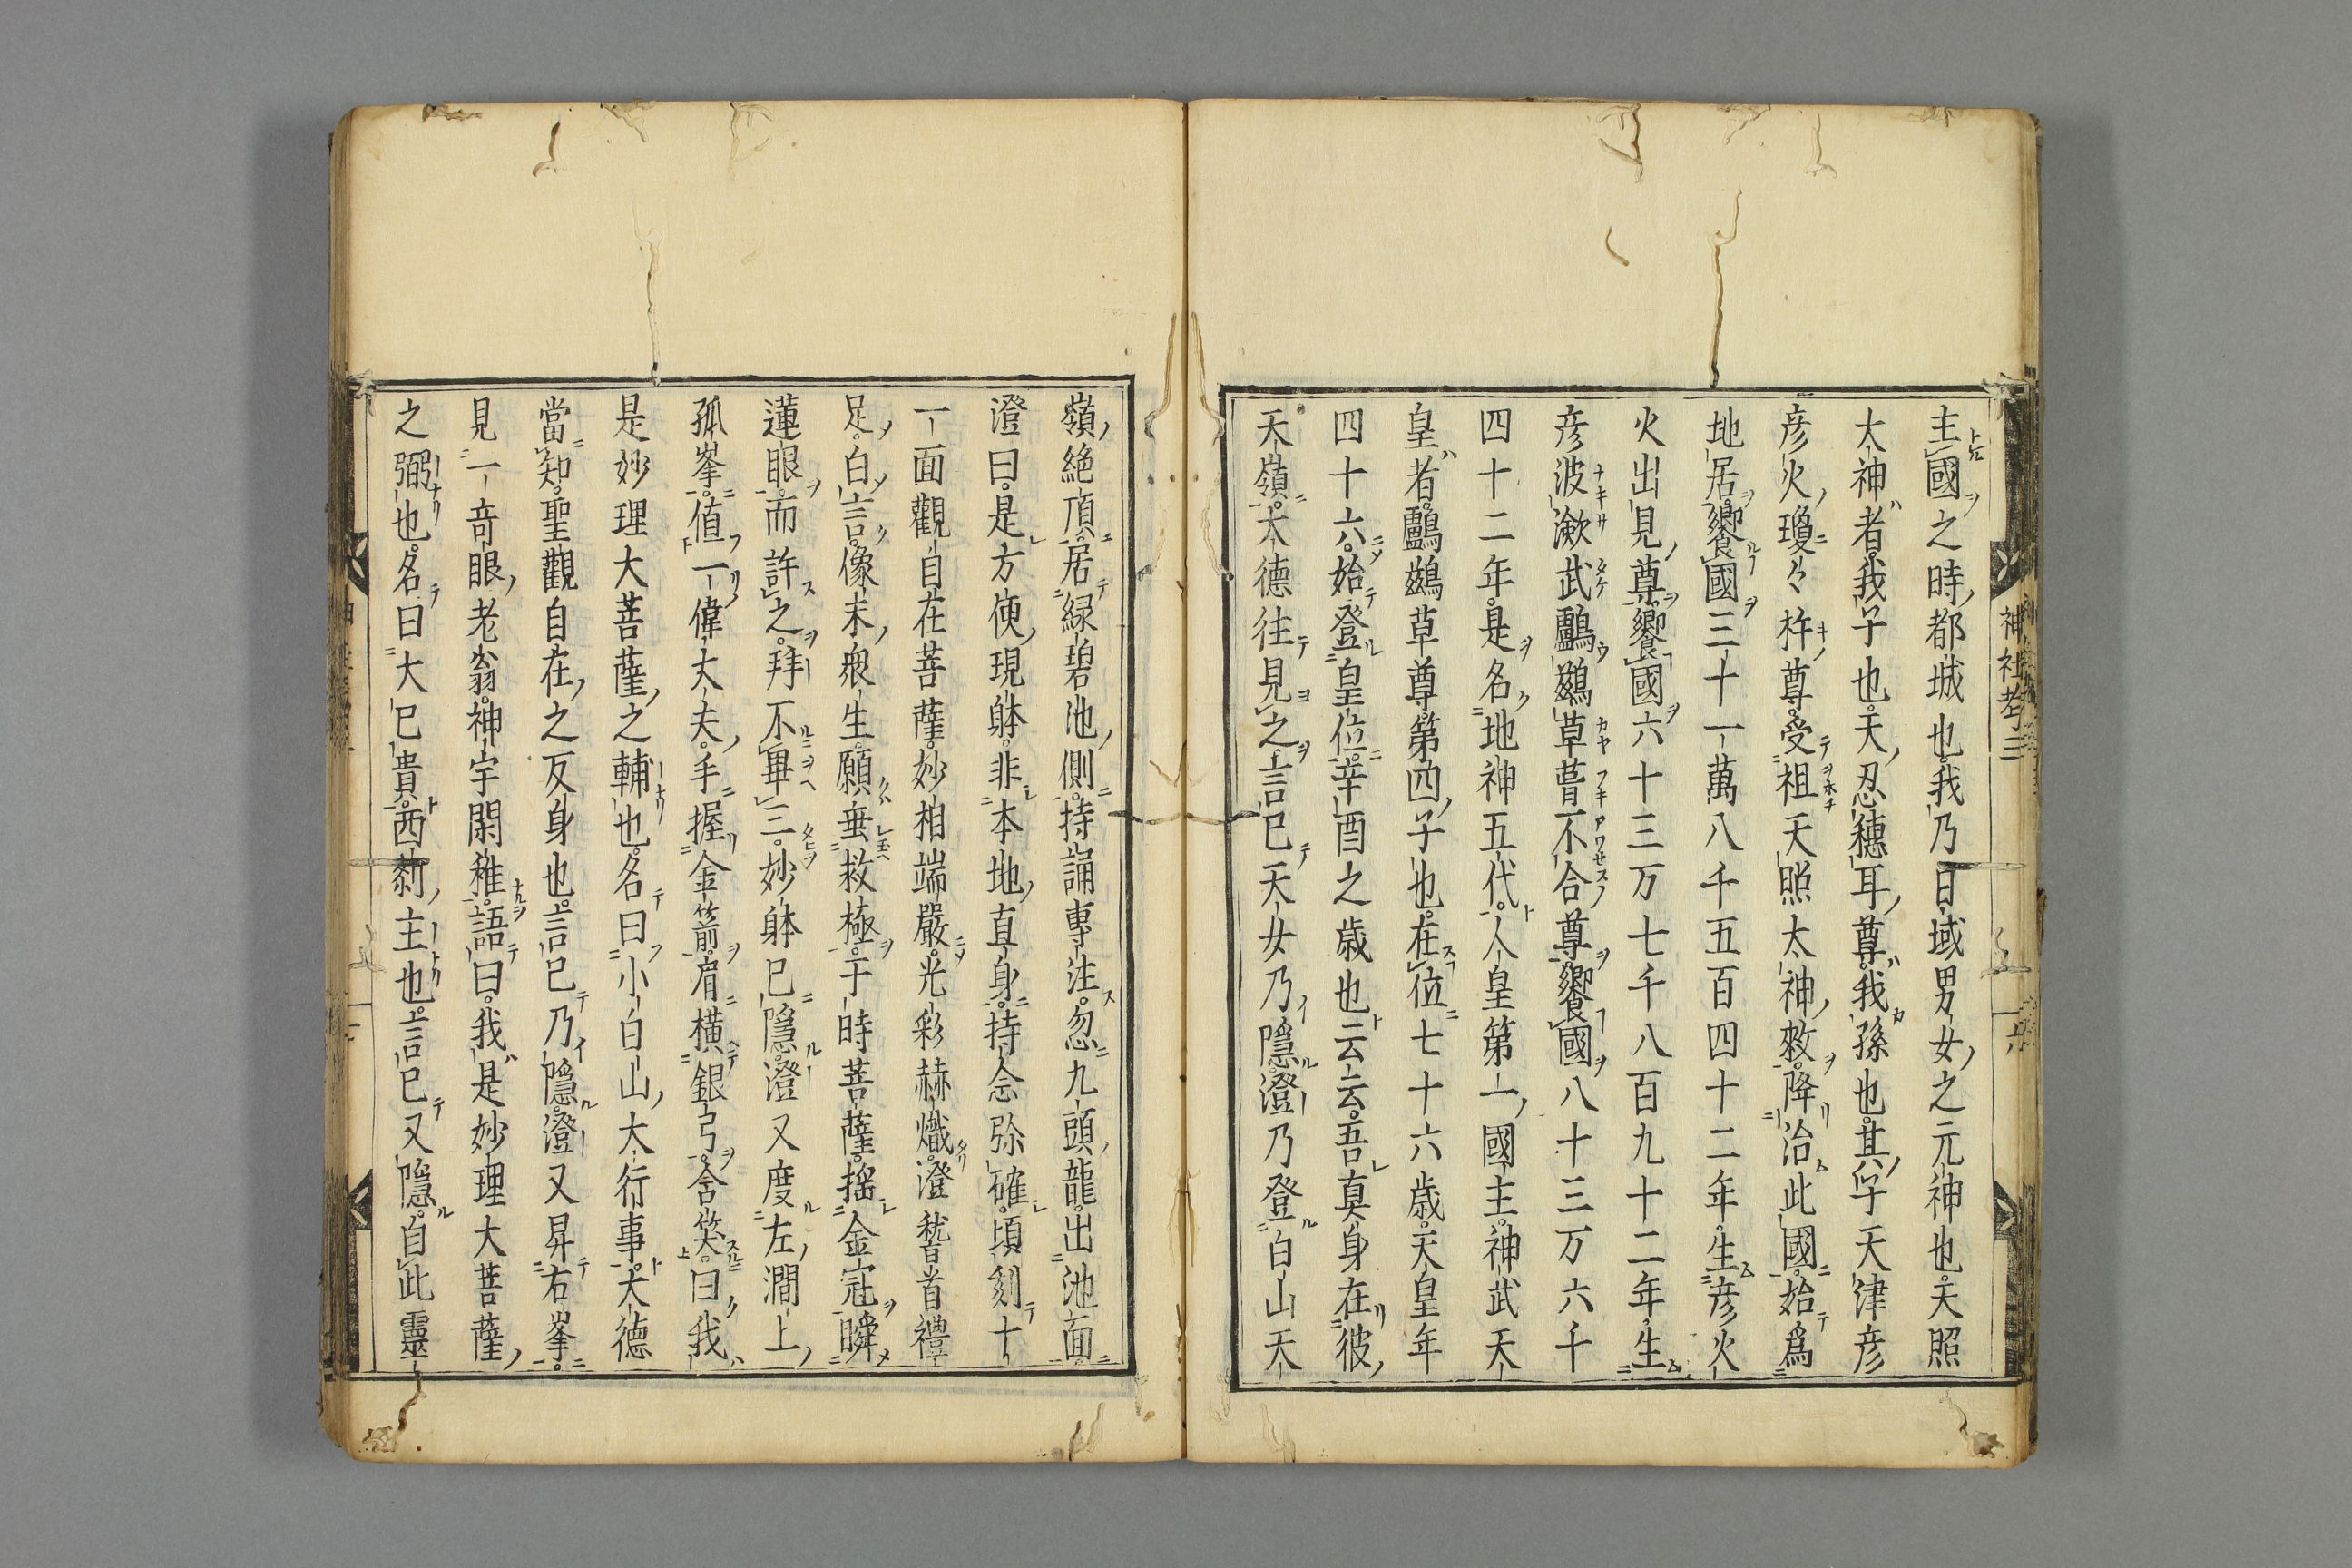 主國之時都城也我乃日域男女之元神也天照
太神者我子也天忍穗耳尊我孫也其子天津彦
彦火瓊々杵尊受祖天照太神敕降治此國始爲
地居饗國三十一萬八千五百四十二年生彦火
火出見尊饗國六十三万七千八百九十二年生
彦波瀲武鸕鷀草葺不合尊饗國八十三万六千
四十二年是名地神五代人皇第一國主神武天
皇者鸕鷀草尊第四子也在位七十六歳天皇年
四十六始登皇位辛酉之歳也云云吾真身在彼
天嶺太德往見之言已天女乃隱澄乃登白山天
神社考 三
嶺絶頂居緑碧池側持誦專注忽九頭龍出池面
澄曰是方便現躰非本地真身持念弥確頃刻十
一面觀自在菩薩妙相端嚴光彩赫熾澄稽首禮
足白言像末衆生願垂救極于時菩薩揺金冠瞬
蓮眼而許之拜不畢三妙躰已隱澄又度左澗上
孤峯值一偉丈夫手握金箭肩横銀弓含笑曰我
是妙理大菩薩之輔也名曰小白山大行事大德
當知聖觀自在之反身也言已乃隱澄又昇右峯
見一竒眼老翁神宇閑稚語曰我是妙理大菩薩
之弼也名曰大已貴西刹主也言已又隱自此靈